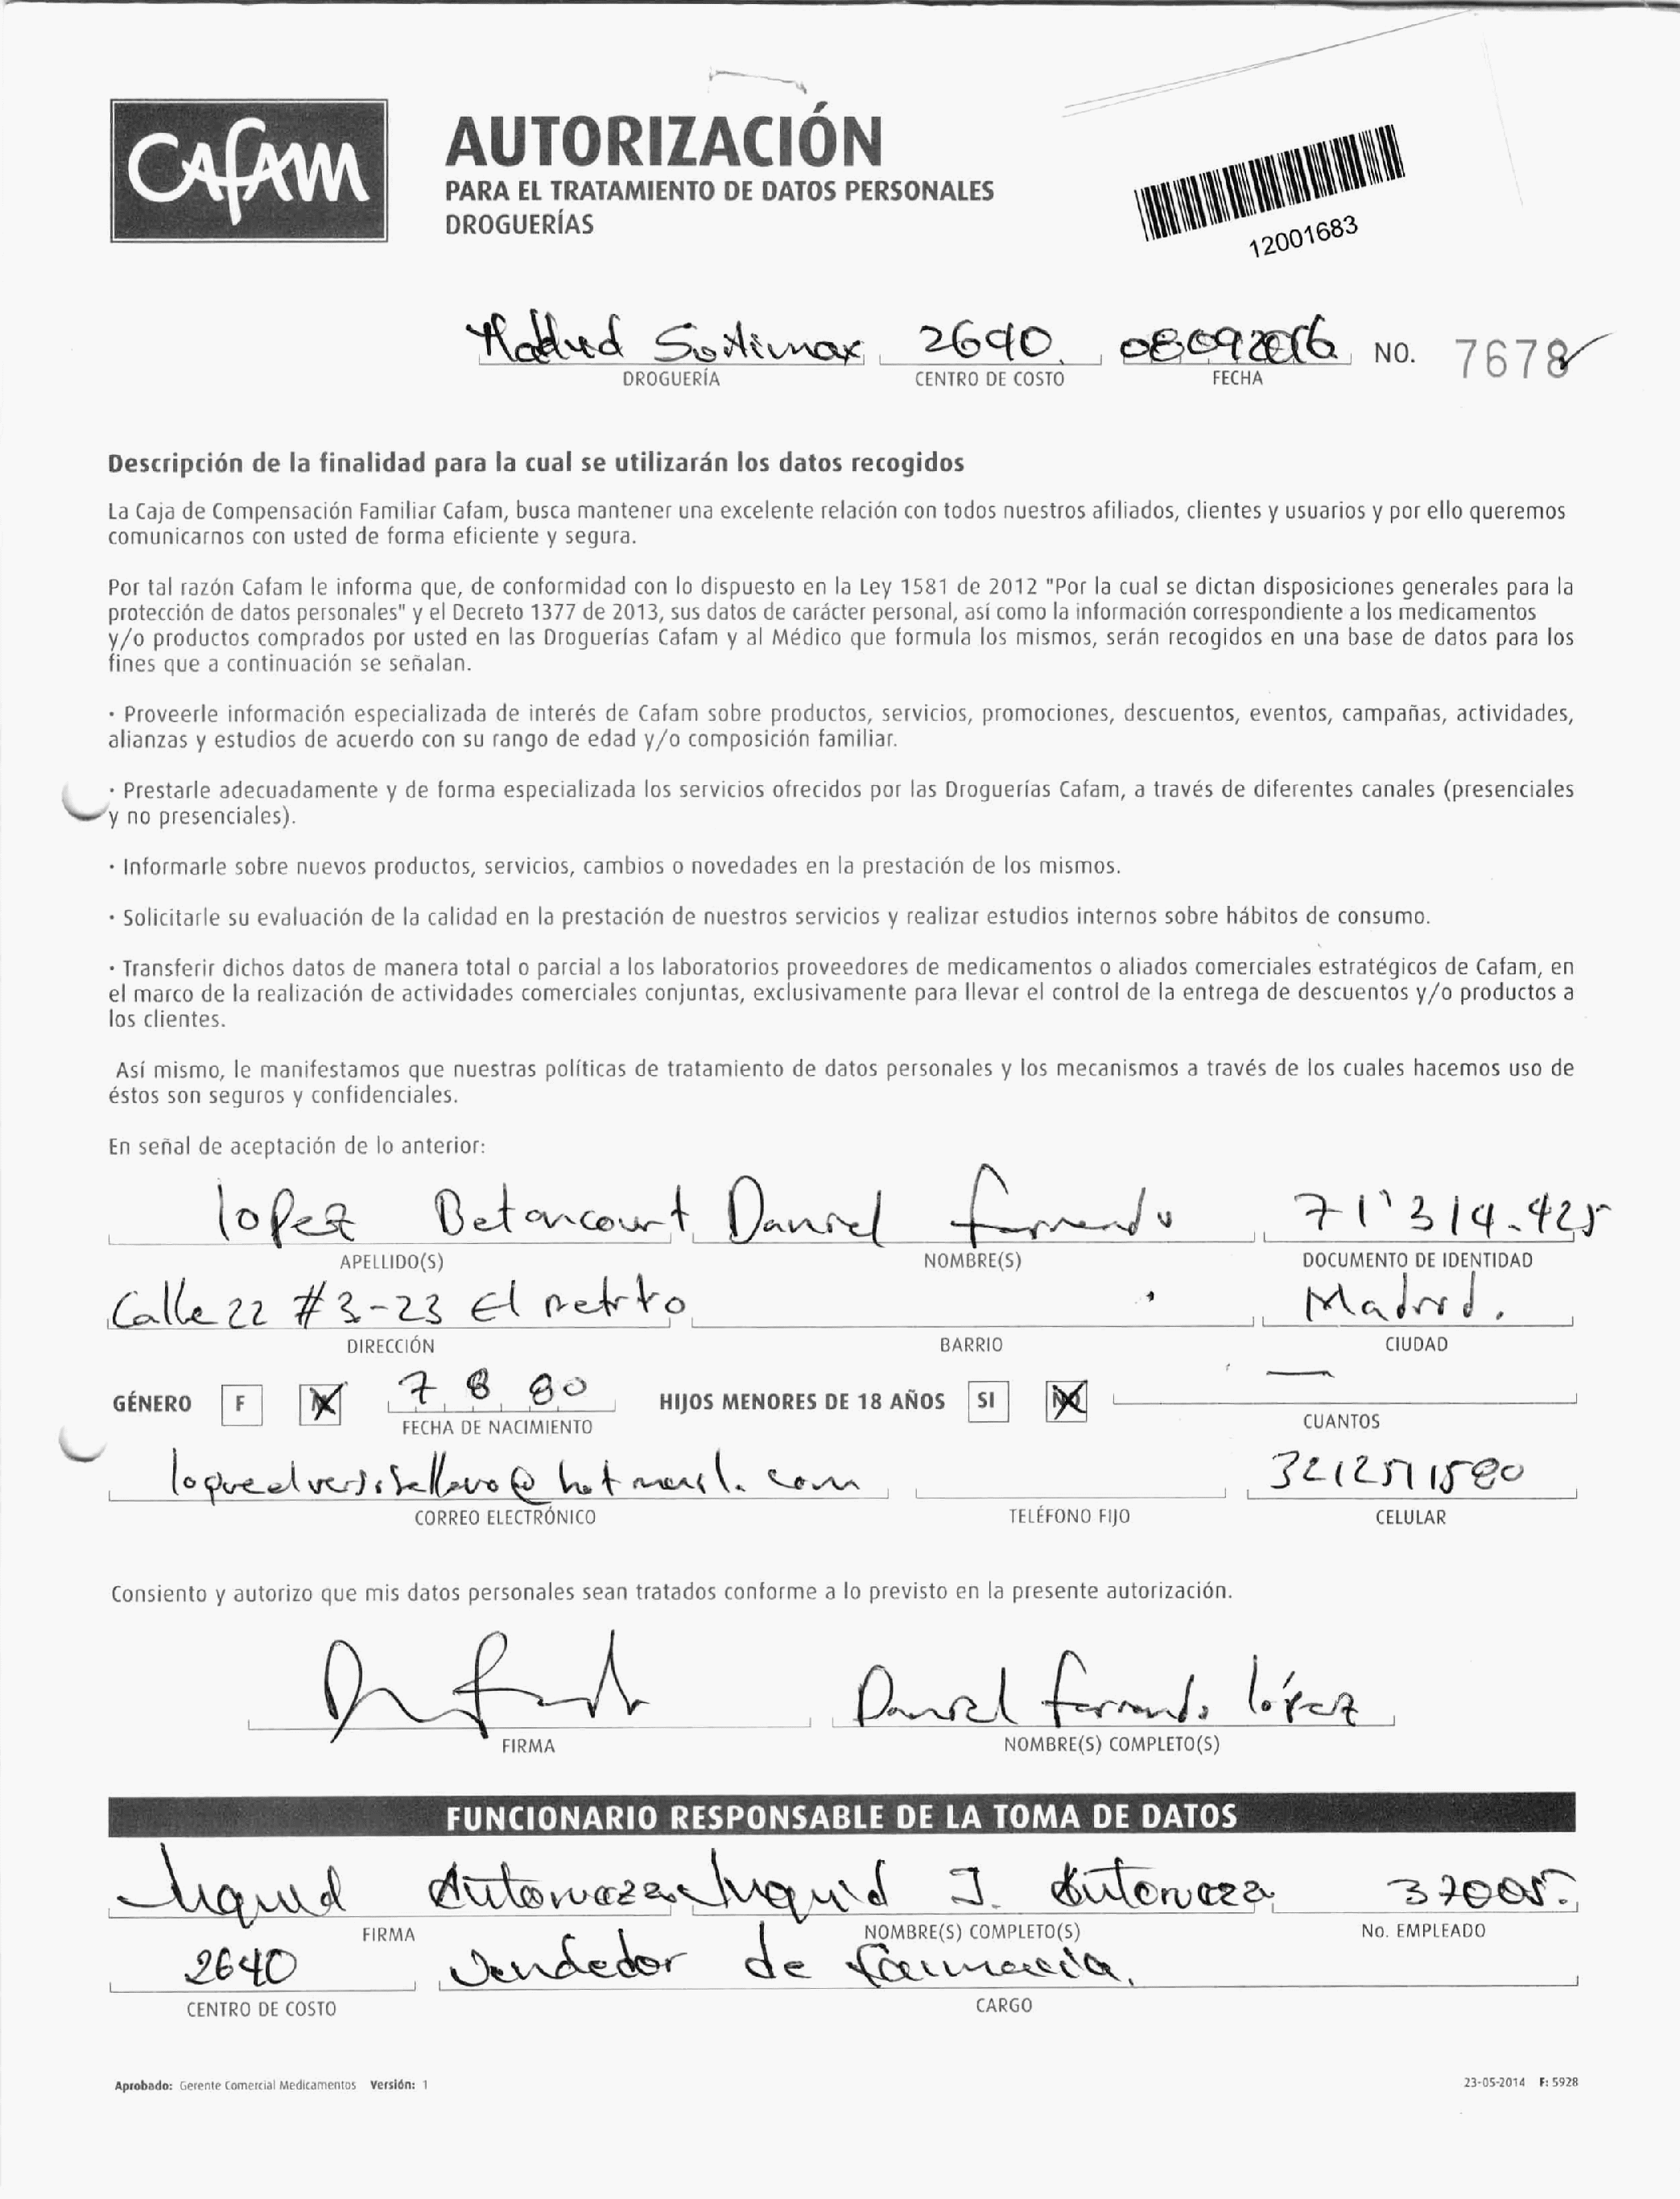 CAFAM
AUTORIZACIÓN
PARA EL TRATAMIENTO DE DATOS PERSONALES
DROGUERÍAS
12001683
Madrid 2640 08092016 NO. 7678
DROGUERÍA CENTRO DE COSTO FECHA
Descripción de la finalidad para la cual se utilizarán los datos recogidos
La Caja de Compensación Familiar Cafam, busca mantener una excelente relación con todos nuestros afiliados, clientes y usuarios y por ello queremos
comunicarnos con usted de forma eficiente y segura.
Por tal razón Cafam le informa que, de conformidad con lo dispuesto en la Ley 1581 de 2012 "Por la cual se dictan disposiciones generales para la
protección de datos personales" y el Decreto 1377 de 2013, sus datos de carácter personal, así como la información correspondiente a los medicamentos
y/o productos comprados por usted en las Droguerías Cafam y al Médico que formula los mismos, serán recogidos en una base de datos para los
fines que a continuación se señalan.
· Proveerle información especializada de interés de Cafam sobre productos, servicios, promociones, descuentos, eventos, campañas, actividades,
alianzas y estudios de acuerdo con su rango de edad y/o composición familiar.
· Prestarle adecuadamente y de forma especializada los servicios ofrecidos por las Droguerías Cafam, a través de diferentes canales (presenciales
y no presenciales).
· Informarle sobre nuevos productos, servicios, cambios o novedades en la prestación de los mismos.
· Solicitarle su evaluación de la calidad en la prestación de nuestros servicios y realizar estudios internos sobre hábitos de consumo.
· Transferir dichos datos de manera total o parcial a los laboratorios proveedores de medicamentos o aliados comerciales estratégicos de Cafam, en
el marco de la realización de actividades comerciales conjuntas, exclusivamente para llevar el control de la entrega de descuentos y/o productos a
los clientes.
Así mismo, le manifestamos que nuestras políticas de tratamiento de datos personales y los mecanismos a través de los cuales hacemos uso de
éstos son seguros y confidenciales.
En señal de aceptación de lo anterior:
lopez Betancourt Daniel fernando 71'314.425
APELLIDO(S) NOMBRE(S) DOCUMENTO DE IDENTIDAD
Calle 22 #3-23 El Madrid.
DIRECCIÓN BARRIO CIUDAD
GÉNERO F 7 8 80 HIJOS MENORES DE 18 AÑOS SI NO —
FECHA DE NACIMIENTO CUANTOS
3212511580
CORREO ELECTRÓNICO TELÉFONO FIJO CELULAR
Consiento y autorizo que mis datos personales sean tratados conforme a lo previsto en la presente autorización.
Daniel fernando lópez
FIRMA NOMBRE(S) COMPLETO(S)
FUNCIONARIO RESPONSABLE DE LA TOMA DE DATOS
37005.
FIRMA NOMBRE(S) COMPLETO(S) No. EMPLEADO
2640 Vendedor de farmacia.
CENTRO DE COSTO CARGO
Aprobado: Gerente Comercial Medicamentos Versión: 1 23-05-2014 F: 5928